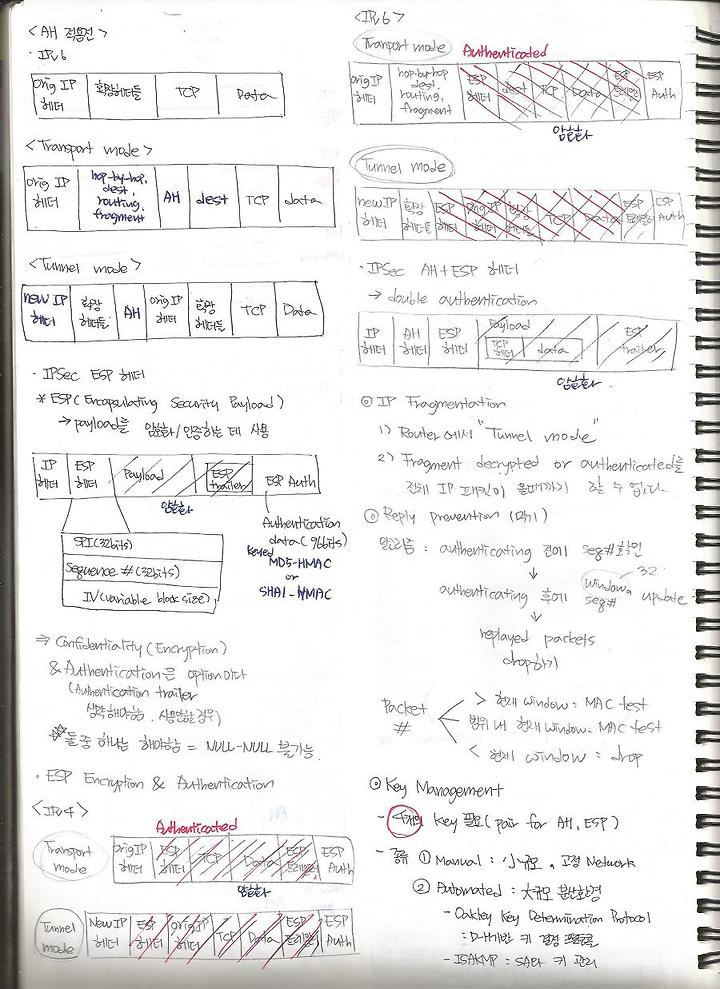 <AH 적용전>
· IPv6
Orig IP 헤더 | 확장헤더들 | TCP | Data
<Transport mode>
Orig IP 헤더 | hop-by-hop, dest, routing, fragment | AH | dest | TCP | data
<Tunnel mode>
new IP 헤더 | 확장 헤더들 | AH | orig IP 헤더 | 확장 헤더들 | TCP | Data
· IPSec ESP 헤더
* ESP(Encapsulating Security Payload)
→ payload를 암호화/인증하는 데 사용
IP 헤더 | ESP 헤더 | Payload | ESP trailer | ESP Auth
암호화
SPI(32bits)
Sequence #(32bits)
IV(variable block size)
Authentication
data(96bits)
keyed MD5-HMAC
or
SHA1-HMAC
⇒ Confidentiality(Encryption)
& Authentication은 option이다
(Authentication trailer
생략해야함, 사용안할경우)
☆둘중 하나는 해야함 = NULL-NULL 불가능.
· ESP Encryption & Authentication
<IPv4>
Authenticated
Transport mode
orig IP 헤더 | ESP 헤더 | TCP | Data | ESP 트레일러 | ESP Auth
암호화
Tunnel mode
New IP 헤더 | ESP 헤더 | Orig IP 헤더 | TCP | Data | ESP 트레일러 | ESP Auth
<IPv6>
Transport mode Authenticated
orig IP 헤더 | hop-by-hop dest, routing, fragment | ESP 헤더 | dest | TCP | Data | ESP 트레일러 | ESP Auth
암호화
Tunnel mode
new IP 헤더 | 확장 헤더들 | ESP 헤더 | Orig IP 헤더 | 확장 헤더들 | TCP | Data | ESP 트레일러 | ESP Auth
· IPSec AH+ESP 헤더
→ double authentication
IP 헤더 | AH 헤더 | ESP 헤더 | Payload | TCP 헤더 | data | ESP trailer
암호화
◎ IP Fragmentation
1) Router에서 "Tunnel mode"
2) Fragment decrypted or authenticated를
전체 IP 패킷이 올때까지 할 수 없다.
◎ Reply prevention (막기)
알고리즘 : authenticating 전에 seq#확인
↓
authenticating 후에 window, seq# update
32
↓
replayed packets
drop하기
Packet #
> 현재 window : MAC test
범위 내 현재 window : MAC test
< 현재 window : drop
◎ Key Management
- 4개의 Key 필요(pair for AH, ESP)
- 종류 ① Manual : 小규모, 고정 Network
② Automated : 大규모 분산환경
- Oakley Key Determination Protocol
: D-H기반 키 결정 프로토콜
- ISAKMP : SA와 키 관리